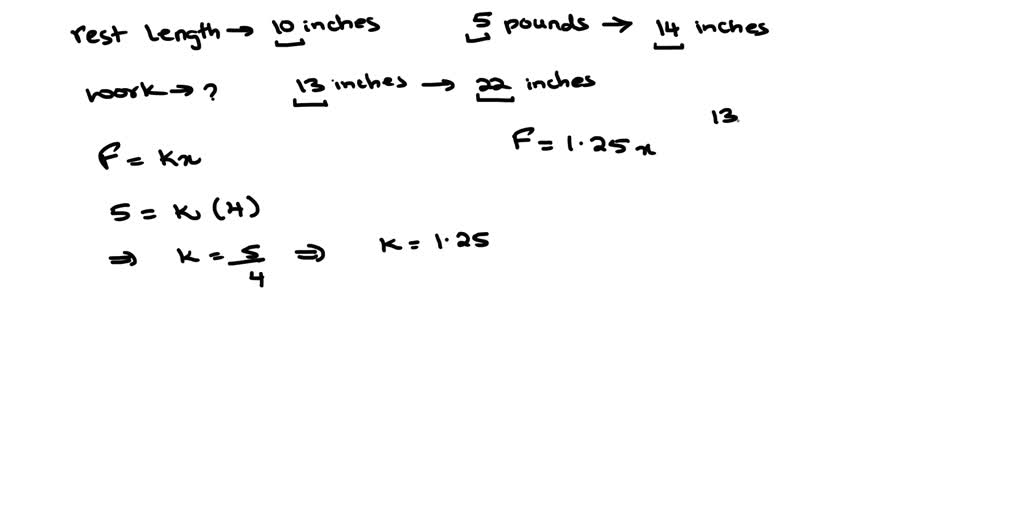 rest length → 10 inches 5 pounds → 14 inches
work → ? 13 inches → 22 inches
F = kx F = 1.25x 13
5 = k (4)
⇒ k = 5/4 ⇒ k = 1.25